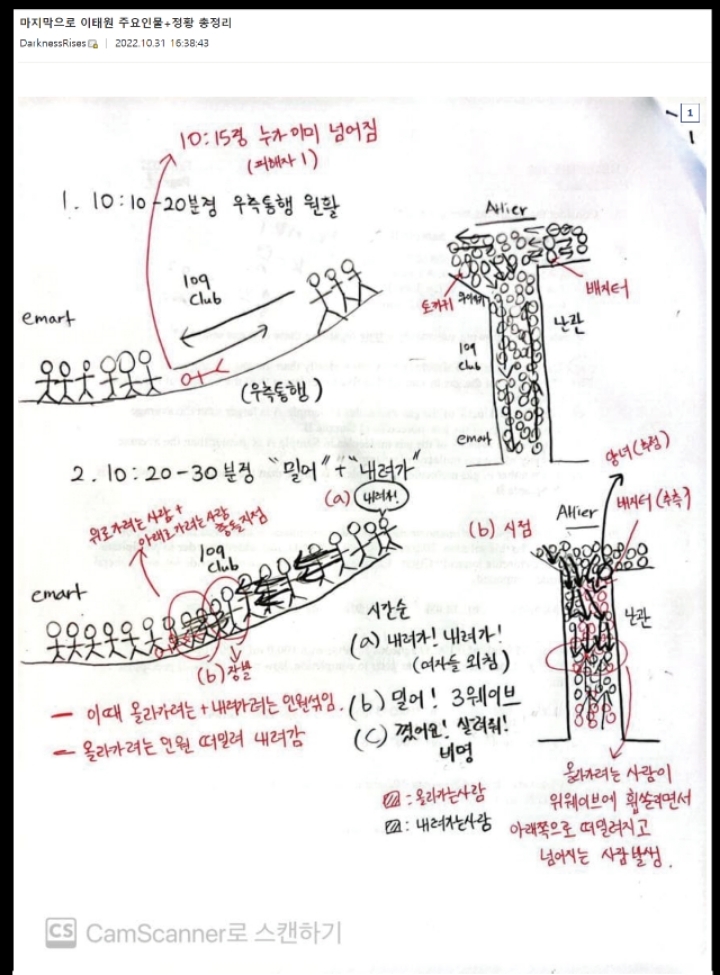 마지막으로 이태원 주요인물+정황 총정리
DarknessRises 2022.10.31 16:38:43
1
10:15경 누가 이미 넘어짐
(피해자 1)
1. 10:10-20분경 우측통행 원활
109
Club
emart
(우측통행)
Atlier
토끼귀
배지터
난관
109
club
emart
2. 10:20-30분경 "밀어"+"내려가"
(a) 내려가!
위로가려는 사람+
아래로가려는사람
충동지점
109
club
emart
(b) 깔림
— 이때 올라가려는+내려가려는 인원섞임.
— 올라가려는 인원 떠밀려 내려감
시간순
(a) 내려가! 내려가!
(여자들 외침)
(b) 밀어! 3웨이브
(c) 꼈어요! 살려줘!
비명
(b) 시점
Atlier
(추정)
배지터(추측)
난관
올라가려는 사람이
위웨이브에 휩쓸리면서
아래쪽으로 떠밀려지고
넘어지는 사람발생.
: 올라가는사람
: 내려가는사람
CS CamScanner로 스캔하기